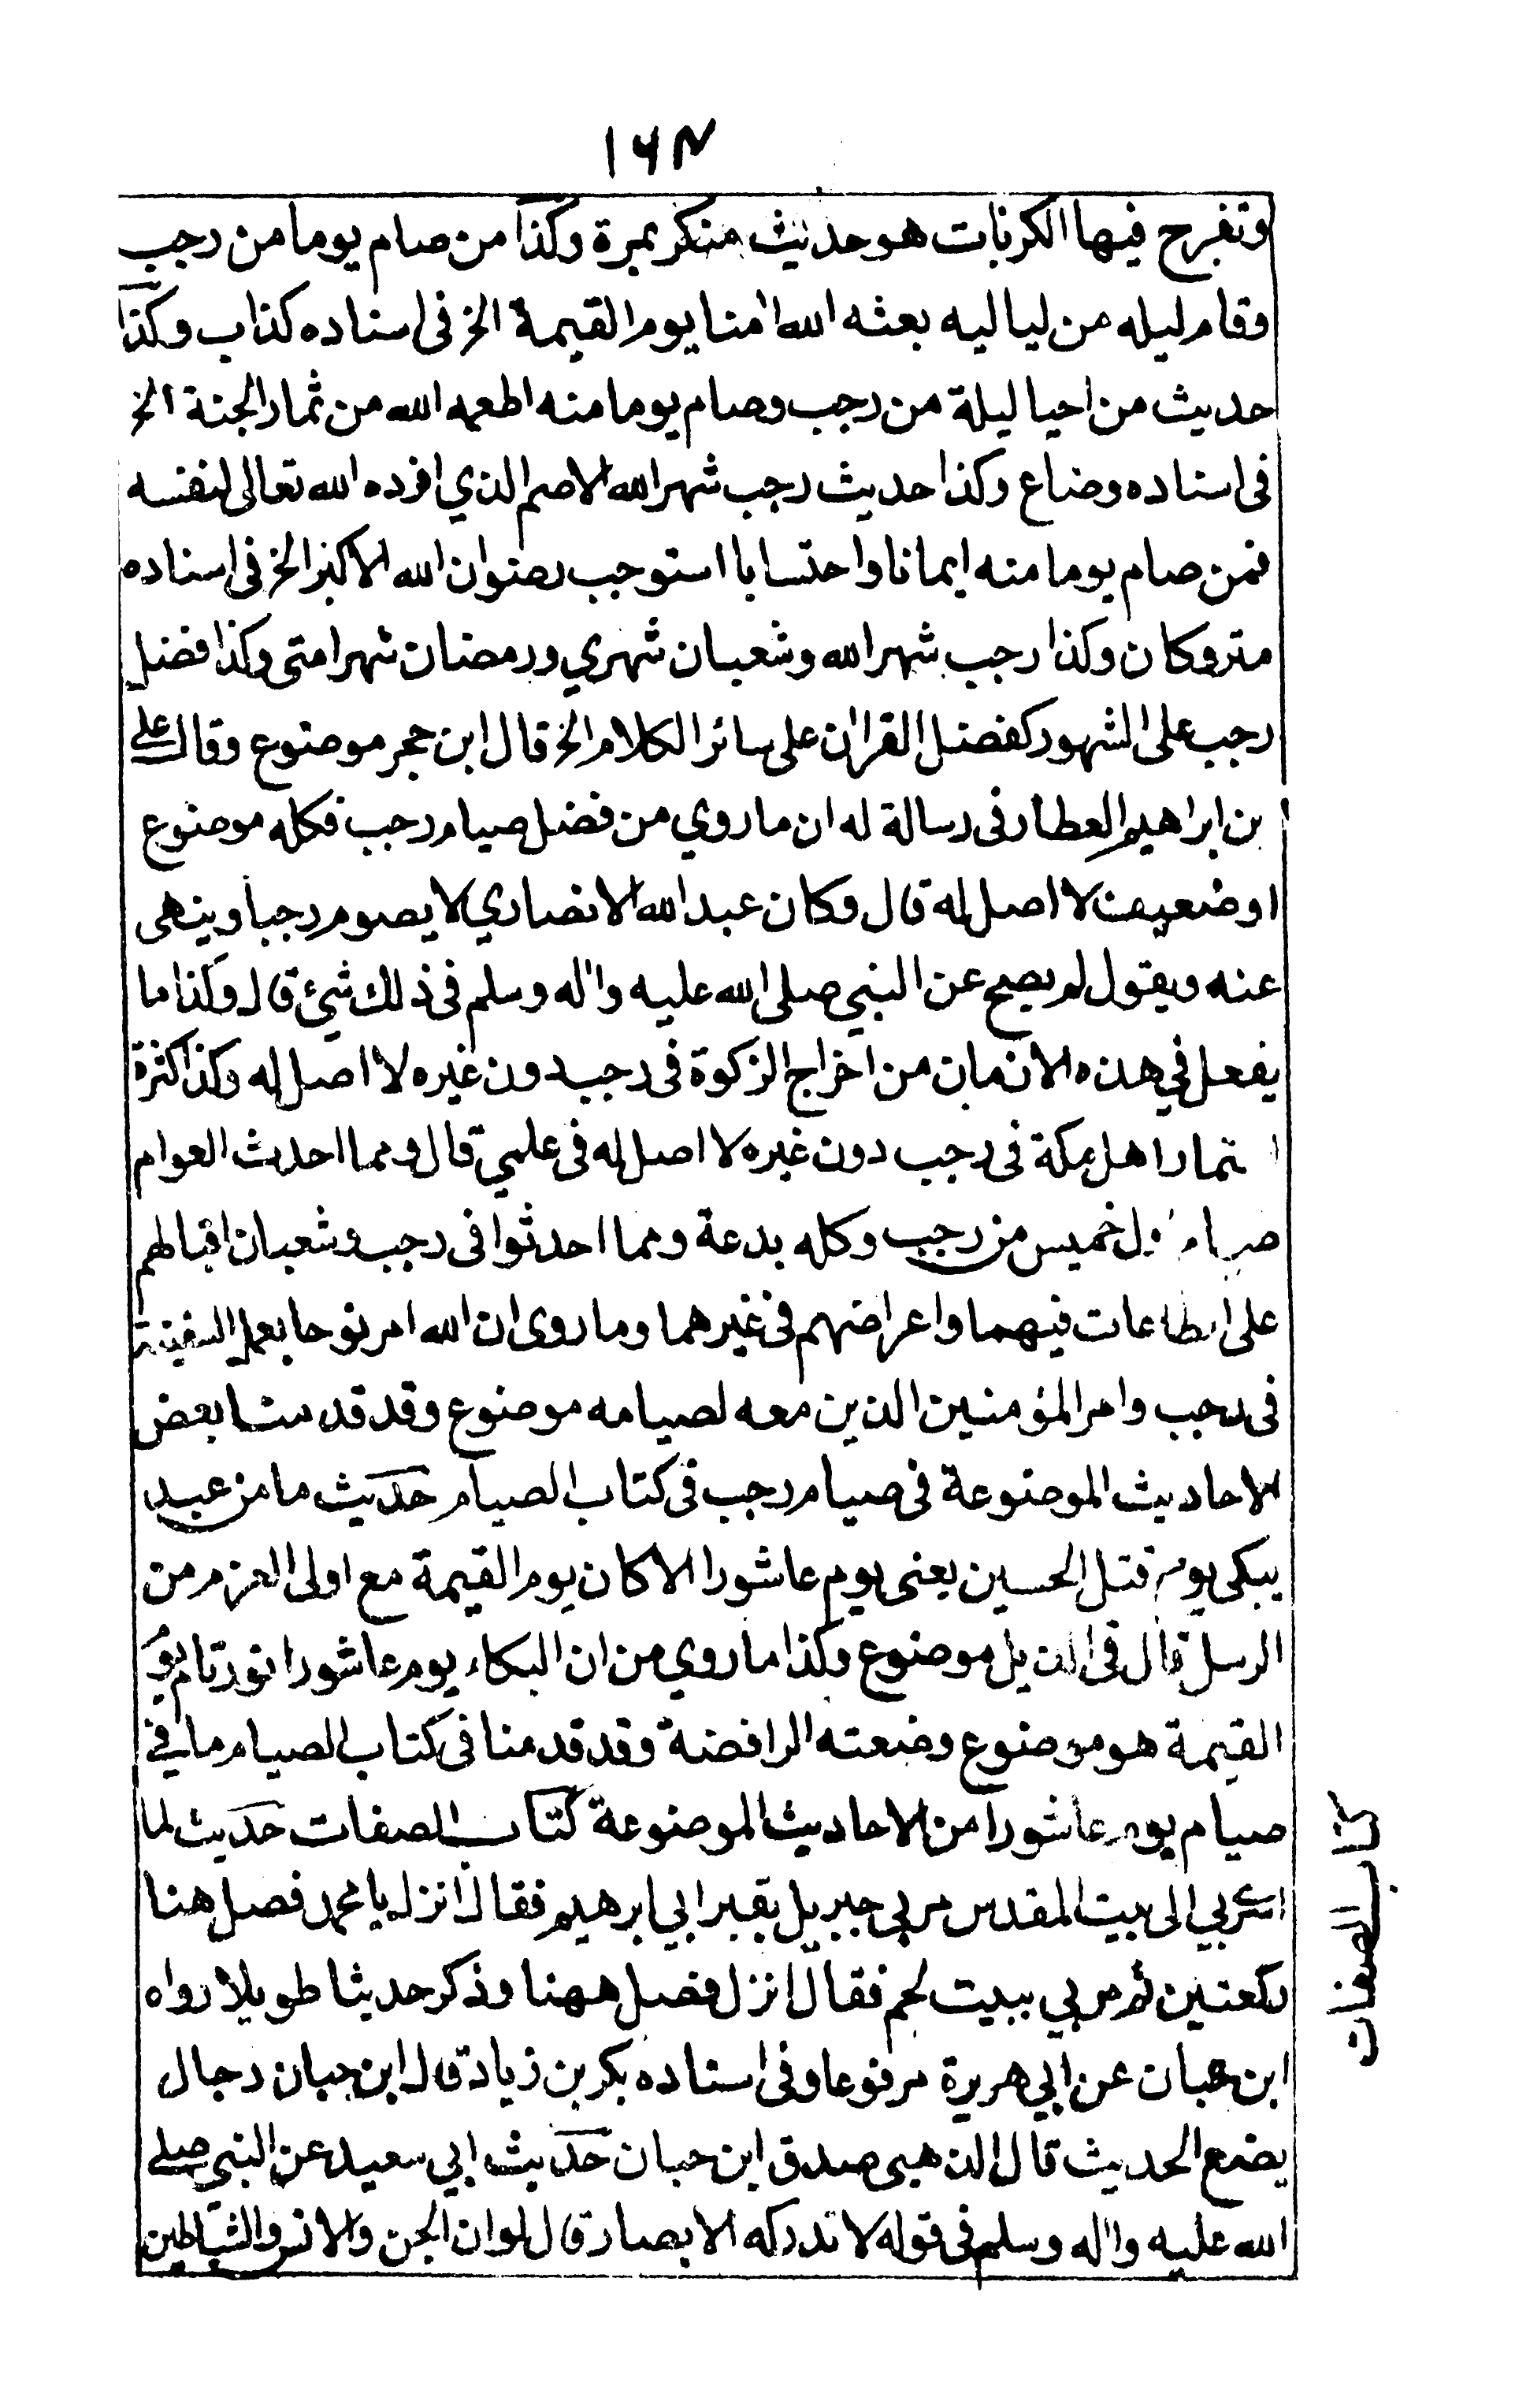 ١٦٣
وتفرح فيها الكربات هو حديث منكر بمرة وكذا من صام يوما من رجب
وقام ليله من لياليه بعثه الله امنا يوم القيمة الخ في اسناده كذاب وكذا
حديث من احيا ليلة من رجب وصام يوما منه اطعمه الله من ثمار الجنة الخ
في اسناده وضاع وكذا حديث رجب شهر الله الاصم الذي افرده الله تعالى لنفسه
فمن صام يوما منه ايمانا واحتسابا استوجب رضوان الله الاكبر الخ في اسناده
متروكان وكذا رجب شهر الله وشعبان شهري ورمضان شهر امتى وكذا فضل
رجب على الشهور كفضل القران على سائر الكلام الخ قال ابن حجر موضوع وقال على
بن ابراهيم العطار في رسالة له ان ما روي من فضل صيام رجب فكله موضوع
او ضعيف لا اصل له قال وكان عبد الله الانصاري لا يصوم رجبا وينهى
عنه ويقول لم يصح عن النبي صلى الله عليه واله وسلم في ذلك شئ قال وكذا ما
يفعل في هذه الازمان من اخراج الزكوة في رجب دون غيره لا اصل له وكذا كثرة
اهل مكة في رجب دون غيره لا اصل له في علمي قال ومما احدث العوام
صيام خميس من رجب وكله بدعة ومما احدثوا في رجب وشعبان اقبالهم
على الطاعات فيهما واعراضهم في غيرهما وما روى ان الله امر نوحا بعمل السفينة
في رجب وامر المؤمنين الذين معه لصيامه موضوع وقد قدمنا بعض
الاحاديث الموضوعة في صيام رجب في كتاب الصيام حديث ما من عبد
يبكى يوم قتل الحسين يعنى يوم عاشورا الا كان يوم القيمة مع اولى العزم من
الرسل قال في الذيل موضوع وكذا ما روي من ان البكاء يوم عاشورا نور تام يوم
القيمة هو موضوع وضعته الرافضة وقد قدمنا في كتاب الصيام ما في
صيام يوم عاشورا من الاحاديث الموضوعة كتاب الصفات حديث لما
اسري بي الى بيت المقدس مر بي جبريل بقبر ابي ابرهيم فقال انزل يا محمد فصل هنا
ركعتين ثم مر بي ببيت لحم فقال انزل فصل ههنا وذكر حديثا طويلا رواه
ابن حبان عن ابي هريرة مرفوعا وفي اسناده بكر بن زياد قال ابن حبان دجال
يضع الحديث قال الذهبى صدق ابن حبان حديث ابي سعيد عن النبي صلى
الله عليه واله وسلم في قوله لا تدركه الابصار قال لو ان الجن والانس والشياطين
كتاب الصفات